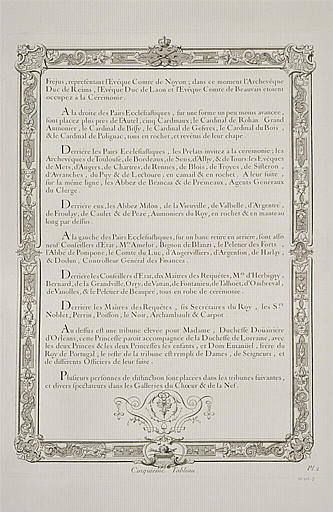 Fréjus, représentant l'Evêque Comte de Noyon; dans ce moment l'Archevêque
Duc de Reims, l'Evêque Duc de Laon et l'Evêque Comte de Beauvais étoient
occupez à la Cérémonie.
A la droite des Pairs Ecclésiastiques, sur une forme un peu moins avancée,
sont placez plus près de l'Autel, cinq Cardinaux; le Cardinal de Rohan Grand
Aumonier, le Cardinal de Bissy, le Cardinal de Gesvres, le Cardinal du Bois,
& le Cardinal de Polignac, tous en rochet, et revetus de leur chape.
Derrière les Pairs Ecclésiastiques, les Prelats invitez à la cérémonie; les
Archevêques de Toulouse, de Bordeaux, de Sens, d'Alby, & de Tours: les Evêques
de Mets, d'Angers, de Chartres, de Rennes, de Blois, de Troyes, de Sisteron,
d'Avranches, du Puy & de Lectoure, en camail & en rochet. A leur suite,
sur la même ligne, les Abbez de Brancas & de Premeaux, Agents Generaux
du Clergé.
Derrière eux, les Abbez Milon, de la Vieuville, de Valbelle, d'Argentré,
de Froulay, de Caulet & de Pezé, Aumoniers du Roy, en rochet & en manteau
long par dessus.
A la gauche des Pairs Ecclésiastiques, sur un banc retiré en arrière, sont assis
neuf Conseillers d'Etat, Mrs Amelot, Bignon de Blanzi, le Peletier des Forts,
l'Abbé de Pompone, le Comte du Luc, d'Angervilliers, d'Argenson, de Harlay,
& Dodun, Controlleur Général des Finances.
Derrière les Conseillers d'Etat, dix Maitres des Requêtes, Mrs d'Herbigny,
Bernard, de la Grandville, Orry, de Vatan, de Fontanieu, de Talhoët, d'Ombreval,
de Vanolles, & le Peletier de Beaupré, tous en robe de cérémonie.
Derrière les Maitres des Requêtes, six Secretaires du Roy, les Srs
Noblet, Perrin, Poisson, le Noir, Archambault & Carpot.
Au dessus est une tribune élevée pour Madame, Duchesse Douairiere
d'Orléans, cette Princesse paroit accompagnée de la Duchesse de Lorraine, avec
les deux Princes & les deux Princesses ses enfants, et Dom Emanuel, frère du
Roy de Portugal; le reste de la tribune est rempli de Dames, de Seigneurs, et
de différents Officiers de leur suite.
Plusieurs personnes de distinction sont placées dans les tribunes suivantes,
et divers spectateurs dans les Galleries du Chœur & de la Nef.
Cinquieme Tableau.
Pl. 2